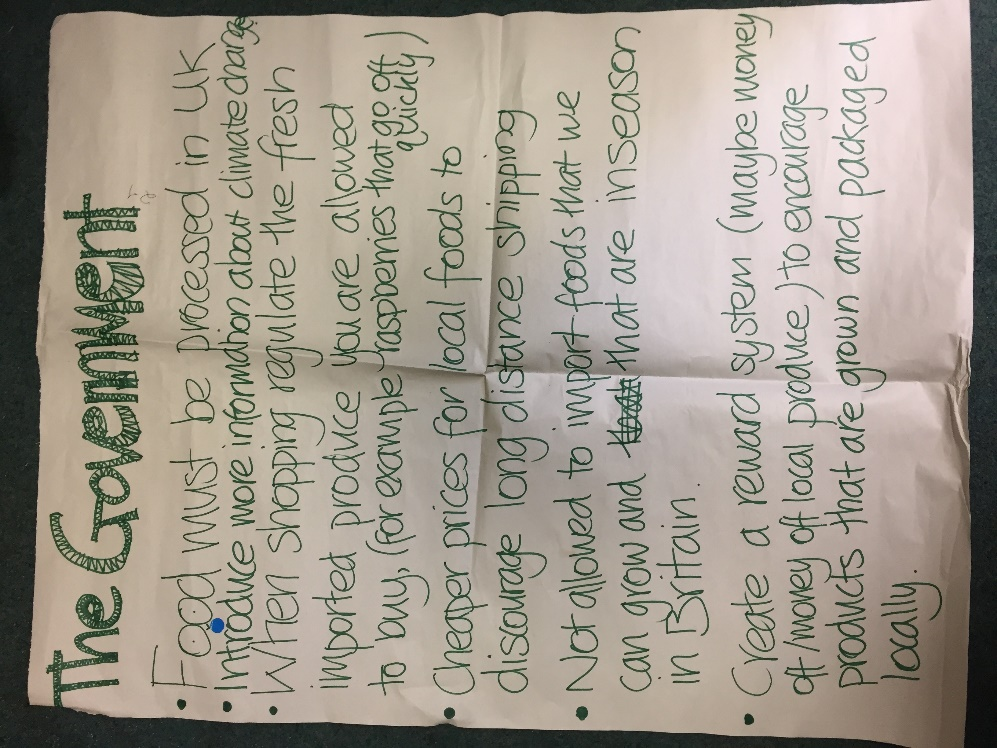 The Government
• Food must be processed in UK
• Introduce more information about climate change
• When shopping regulate the fresh
imported produce you are allowed
to buy, (for example raspberries that go off
quickly)
• Cheaper prices for local foods to
discourage long distance shipping
• Not allowed to import foods that we
can grow and that are in season
in Britain.
• Create a reward system (maybe money
off/money off local produce) to encourage
products that are grown and packaged
locally.